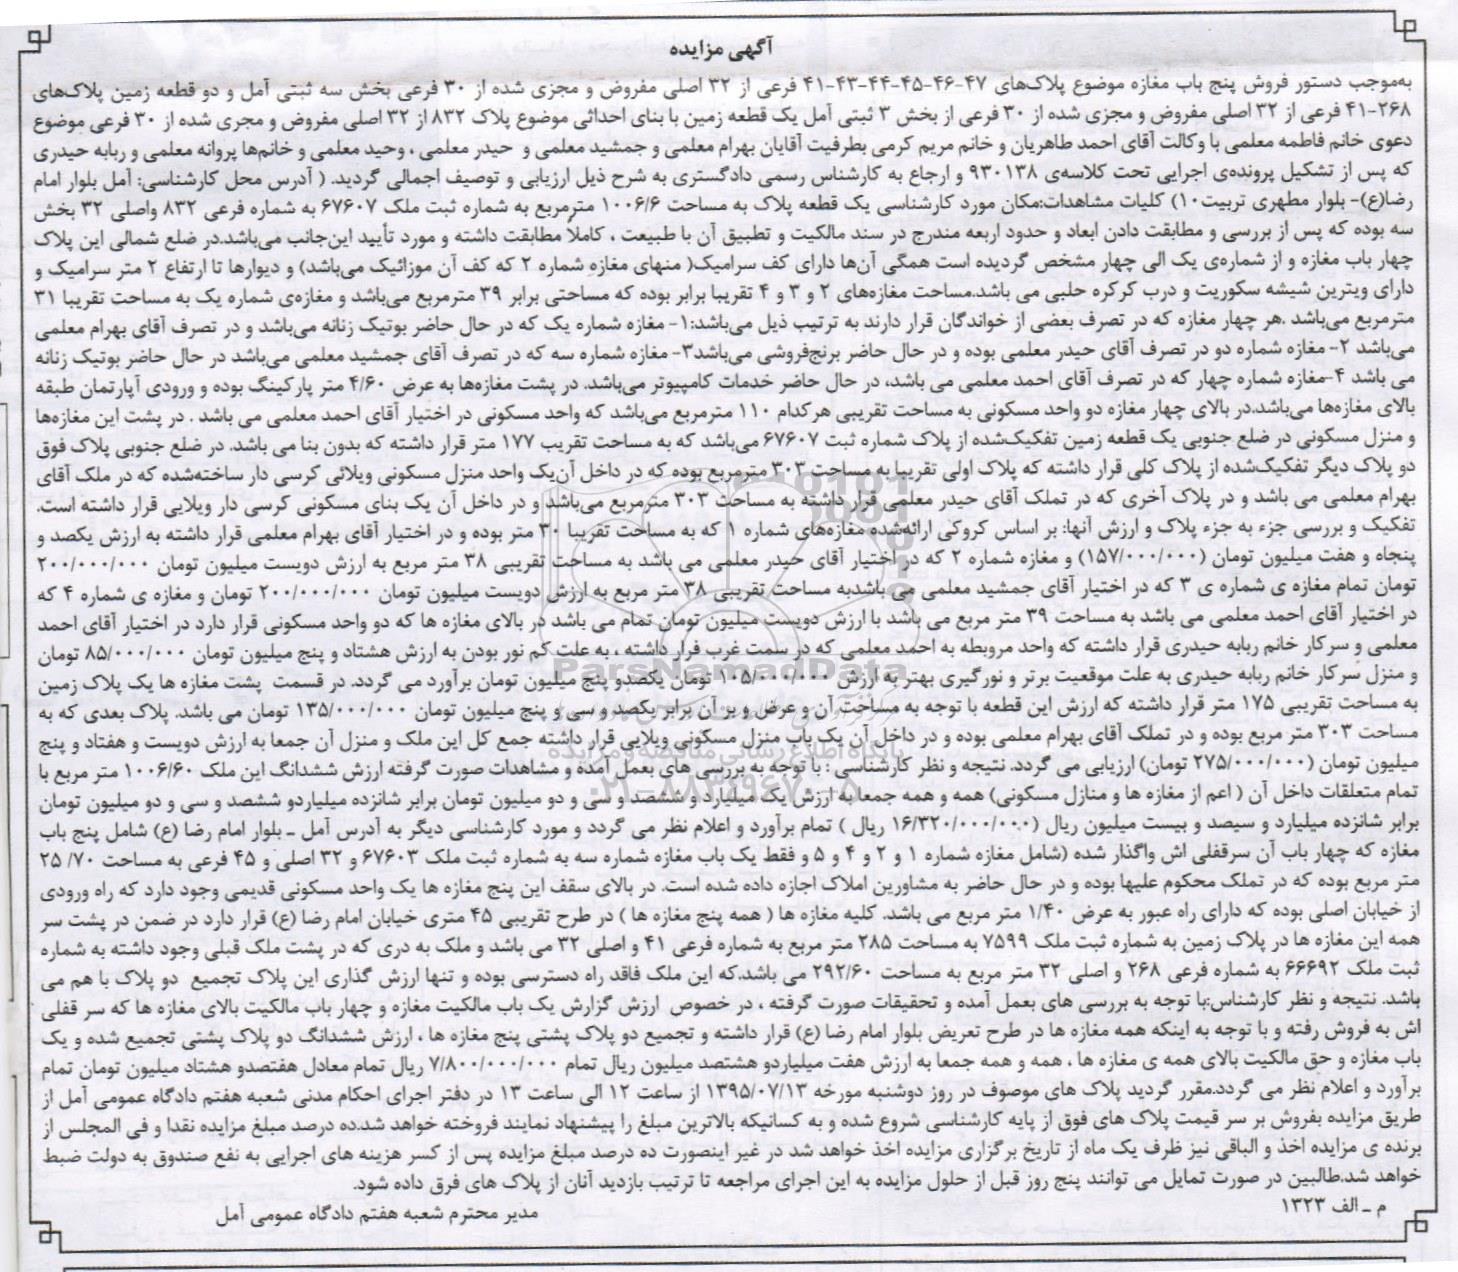 آگهی مزایده
به‌موجب دستور فروش پنج باب مغازه موضوع پلاک‌های ۴۷-۴۶-۴۵-۴۴-۴۳-۴۱ فرعی از ۳۲ اصلی مفروض و مجزی شده از ۳۰ فرعی بخش سه ثبتی آمل و دو قطعه زمین پلاک‌های
۲۶۸-۴۱ فرعی از ۳۲ اصلی مفروض و مجزی شده از ۳۰ فرعی از بخش ۳ ثبتی آمل یک قطعه زمین با بنای احداثی موضوع پلاک ۸۳۲ از ۳۲ اصلی مفروض و مجری شده از ۳۰ فرعی موضوع
دعوی خانم فاطمه معلمی با وکالت آقای احمد طاهریان و خانم مریم کرمی بطرفیت آقایان بهرام معلمی و جمشید معلمی و حیدر معلمی ، وحید معلمی و خانم‌ها پروانه معلمی و ربابه حیدری
که پس از تشکیل پرونده‌ی اجرایی تحت کلاسه‌ی ۹۳۰۱۳۸ و ارجاع به کارشناس رسمی دادگستری به شرح ذیل ارزیابی و توصیف اجمالی گردید. ( آدرس محل کارشناسی: آمل بلوار امام
رضا(ع)- بلوار مطهری تربیت۱۰) کلیات مشاهدات:مکان مورد کارشناسی یک قطعه پلاک به مساحت ۱۰۰۶/۶ مترمربع به شماره ثبت ملک ۶۷۶۰۷ به شماره فرعی ۸۳۲ واصلی ۳۲ بخش
سه بوده که پس از بررسی و مطابقت دادن ابعاد و حدود اربعه مندرج در سند مالکیت و تطبیق آن با طبیعت ، کاملاً مطابقت داشته و مورد تأیید این‌جانب می‌باشد.در ضلع شمالی این پلاک
چهار باب مغازه و از شماره‌ی یک الی چهار مشخص گردیده است همگی آن‌ها دارای کف سرامیک( منهای مغازه شماره ۲ که کف آن موزائیک می‌باشد) و دیوارها تا ارتفاع ۲ متر سرامیک و
دارای ویترین شیشه سکوریت و درب کرکره حلبی می باشد.مساحت مغازه‌های ۲ و ۳ و ۴ تقریبا برابر بوده که مساحتی برابر ۳۹ مترمربع می‌باشد و مغازه‌ی شماره یک به مساحت تقریبا ۳۱
مترمربع می‌باشد .هر چهار مغازه که در تصرف بعضی از خواندگان قرار دارند به ترتیب ذیل می‌باشد:۱- مغازه شماره یک که در حال حاضر بوتیک زنانه می‌باشد و در تصرف آقای بهرام معلمی
می‌باشد ۲- مغازه شماره دو در تصرف آقای حیدر معلمی بوده و در حال حاضر برنج‌فروشی می‌باشد۳- مغازه شماره سه که در تصرف آقای جمشید معلمی می‌باشد در حال حاضر بوتیک زنانه
می باشد ۴-مغازه شماره چهار که در تصرف آقای احمد معلمی می باشد، در حال حاضر خدمات کامپیوتر می‌باشد. در پشت مغازه‌ها به عرض ۴/۶۰ متر پارکینگ بوده و ورودی آپارتمان طبقه
بالای مغازه‌ها می‌باشد.در بالای چهار مغازه دو واحد مسکونی به مساحت تقریبی هرکدام ۱۱۰ مترمربع می‌باشد که واحد مسکونی در اختیار آقای احمد معلمی می باشد . در پشت این مغازه‌ها
و منزل مسکونی در ضلع جنوبی یک قطعه زمین تفکیک‌شده از پلاک شماره ثبت ۶۷۶۰۷ می‌باشد که به مساحت تقریب ۱۷۷ متر قرار داشته که بدون بنا می باشد. در ضلع جنوبی پلاک فوق
دو پلاک دیگر تفکیک‌شده از پلاک کلی قرار داشته که پلاک اولی تقریبا به مساحت ۳۰۳ مترمربع بوده که در داخل آن‌یک واحد منزل مسکونی ویلائی کرسی دار ساخته‌شده که در ملک آقای
بهرام معلمی می باشد و در پلاک آخری که در تملک آقای حیدر معلمی قرار داشته به مساحت ۳۰۳ مترمربع می‌باشد و در داخل آن یک بنای مسکونی کرسی دار ویلایی قرار داشته است.
تفکیک و بررسی جزء به جزء پلاک و ارزش آنها: بر اساس کروکی ارائه‌شده مغازه‌های شماره ۱ که به مساحت تقریبا ۳۰ متر بوده و در اختیار آقای بهرام معلمی قرار داشته به ارزش یکصد و
پنجاه و هفت میلیون تومان (۱۵۷/۰۰۰/۰۰۰) و مغازه شماره ۲ که در اختیار آقای حیدر معلمی می باشد به مساحت تقریبی ۳۸ متر مربع به ارزش دویست میلیون تومان ۲۰۰/۰۰۰/۰۰۰
تومان تمام مغازه ی شماره ی ۳ که در اختیار آقای جمشید معلمی می باشدبه مساحت تقریبی ۳۸ متر مربع به ارزش دویست میلیون تومان ۲۰۰/۰۰۰/۰۰۰ تومان و مغازه ی شماره ۴ که
در اختیار آقای احمد معلمی می باشد به مساحت ۳۹ متر مربع می باشد با ارزش دویست میلیون تومان تمام می باشد در بالای مغازه ها که دو واحد مسکونی قرار دارد در اختیار آقای احمد
معلمی و سرکار خانم ربابه حیدری قرار داشته که واحد مروبطه به احمد معلمی که در سمت غرب قرار داشته ، به علت کم نور بودن به ارزش هشتاد و پنج میلیون تومان ۸۵/۰۰۰/۰۰۰ تومان
و منزل سرکار خانم ربابه حیدری به علت موقعیت برتر و نورگیری بهتر به ارزش ۱۰۵/۰۰۰/۰۰۰ تومان یکصدو پنج میلیون تومان برآورد می گردد. در قسمت پشت مغازه ها یک پلاک زمین
به مساحت تقریبی ۱۷۵ متر قرار داشته که ارزش این قطعه با توجه به مساحت آن و عرض و بر آن برابر یکصد و سی و پنج میلیون تومان ۱۳۵/۰۰۰/۰۰۰ تومان می باشد. پلاک بعدی که به
مساحت ۳۰۳ متر مربع بوده و در تملک آقای بهرام معلمی بوده و در داخل آن یک باب منزل مسکونی ویلایی قرار داشته جمع کل این ملک و منزل آن جمعا به ارزش دویست و هفتاد و پنج
میلیون تومان (۲۷۵/۰۰۰/۰۰۰ تومان) ارزیابی می گردد. نتیجه و نظر کارشناسی : با توجه به بررسی های بعمل آمده و مشاهدات صورت گرفته ارزش ششدانگ این ملک ۱۰۰۶/۶۰ متر مربع با
تمام متعلقات داخل آن ( اعم از مغازه ها و منازل مسکونی) همه و همه جمعا به ارزش یک میلیارد و ششصد و سی و دو میلیون تومان برابر شانزده میلیاردو ششصد و سی و دو میلیون تومان
برابر شانزده میلیارد و سیصد و بیست میلیون ریال (۱۶/۳۲۰/۰۰۰/۰۰۰ ریال ) تمام برآورد و اعلام نظر می گردد و مورد کارشناسی دیگر به آدرس آمل ـ بلوار امام رضا (ع) شامل پنج باب
مغازه که چهار باب آن سرقفلی اش واگذار شده (شامل مغازه شماره ۱ و ۲ و ۴ و ۵ و فقط یک باب مغازه شماره سه به شماره ثبت ملک ۶۷۶۰۳ و ۳۲ اصلی و ۴۵ فرعی به مساحت ۲۵/۷۰
متر مربع بوده که در تملک محکوم علیها بوده و در حال حاضر به مشاورین املاک اجازه داده شده است. در بالای سقف این پنج مغازه ها یک واحد مسکونی قدیمی وجود دارد که راه ورودی
از خیابان اصلی بوده که دارای راه عبور به عرض ۱/۴۰ متر مربع می باشد. کلیه مغازه ها ( همه پنج مغازه ها ) در طرح تقریبی ۴۵ متری خیابان امام رضا (ع) قرار دارد در ضمن در پشت سر
همه این مغازه ها در پلاک زمین به شماره ثبت ملک ۷۵۹۹ به مساحت ۲۸۵ متر مربع به شماره فرعی ۴۱ و اصلی ۳۲ می باشد و ملک به دری که در پشت ملک قبلی وجود داشته به شماره
ثبت ملک ۶۶۶۹۲ به شماره فرعی ۲۶۸ و اصلی ۳۲ متر مربع به مساحت ۲۹۲/۶۰ می باشد.که این ملک فاقد راه دسترسی بوده و تنها ارزش گذاری این پلاک تجمیع دو پلاک با هم می
باشد. نتیجه و نظر کارشناس:با توجه به بررسی های بعمل آمده و تحقیقات صورت گرفته ، در خصوص ارزش گزارش یک باب مالکیت مغازه و چهار باب مالکیت بالای مغازه ها که سر قفلی
اش به فروش رفته و با توجه به اینکه همه مغازه ها در طرح تعریض بلوار امام رضا (ع) قرار داشته و تجمیع دو پلاک پشتی پنج مغازه ها ، ارزش ششدانگ دو پلاک پشتی تجمیع شده و یک
باب مغازه و حق مالکیت بالای همه ی مغازه ها ، همه و همه جمعا به ارزش هفت میلیاردو هشتصد میلیون ریال تمام ۷/۸۰۰/۰۰۰/۰۰۰ ریال تمام معادل هفتصدو هشتاد میلیون تومان تمام
برآورد و اعلام نظر می گردد.مقرر گردید پلاک های موصوف در روز دوشنبه مورخه ۱۳۹۵/۰۷/۱۳ از ساعت ۱۲ الی ساعت ۱۳ در دفتر اجرای احکام مدنی شعبه هفتم دادگاه عمومی آمل از
طریق مزایده بفروش بر سر قیمت پلاک های فوق از پایه کارشناسی شروع شده و به کسانیکه بالاترین مبلغ را پیشنهاد نمایند فروخته خواهد شد.ده درصد مبلغ مزایده نقدا و فی المجلس از
برنده ی مزایده اخذ و الباقی نیز ظرف یک ماه از تاریخ برگزاری مزایده اخذ خواهد شد در غیر اینصورت ده درصد مبلغ مزایده پس از کسر هزینه های اجرایی به نفع صندوق به دولت ضبط
خواهد شد.طالبین در صورت تمایل می توانند پنج روز قبل از حلول مزایده به این اجرای مراجعه تا ترتیب بازدید آنان از پلاک های فرق داده شود.
م ـ الف ۱۳۲۳
مدیر محترم شعبه هفتم دادگاه عمومی آمل
ParsNamadData
پایگاه اطلاع رسانی مناقصه و مزایده
۰۲۱-۸۸۳۴۹۶۷۰-۵